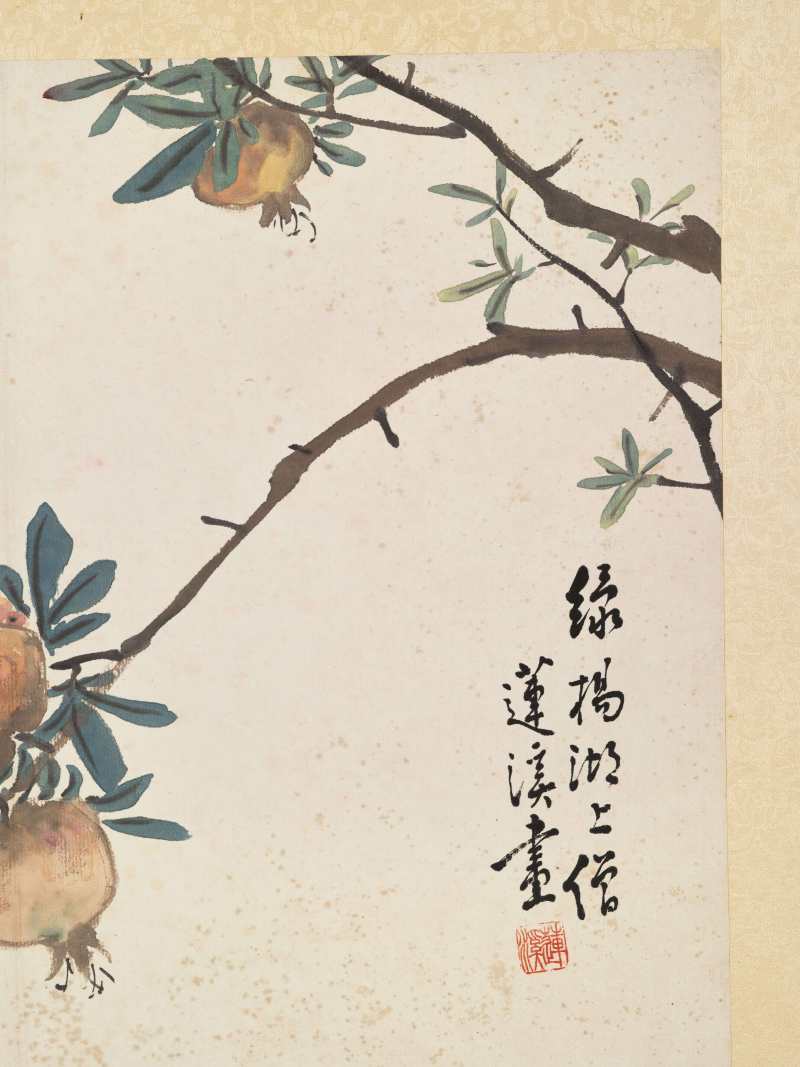 綠楊湖上僧
蓮溪畫
蓮溪